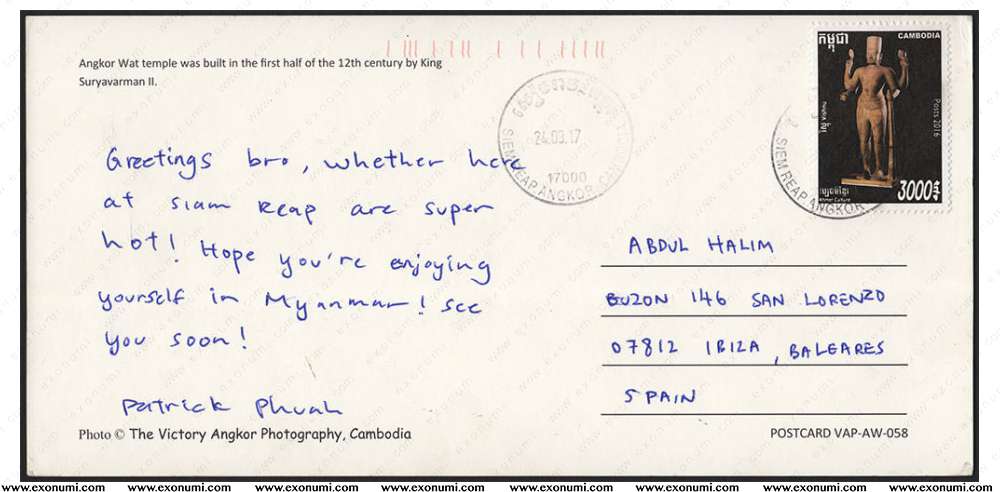 Angkor Wat temple was built in the first half of the 12th century by King
Suryavarman II.
កម្ពុជា
CAMBODIA
Posts 2016
វប្បធម៌ខ្មែរ
Khmer Culture
3000៛
24.03.17
17000
SIEM REAP ANGKOR
SIEM REAP ANGKOR
Greetings bro, whether here
at Siam Reap are super
hot! Hope you're enjoying
yourself in Myanmar! See
you soon!
Patrick Phuah
ABDUL HALIM
BUZON 146 SAN LORENZO
07812 IBIZA, BALEARES
SPAIN
Photo © The Victory Angkor Photography, Cambodia
POSTCARD VAP-AW-058
www.exonumi.com www.exonumi.com www.exonumi.com www.exonumi.com www.exonumi.com www.exonumi.com www.exonumi.com www.exonumi.com